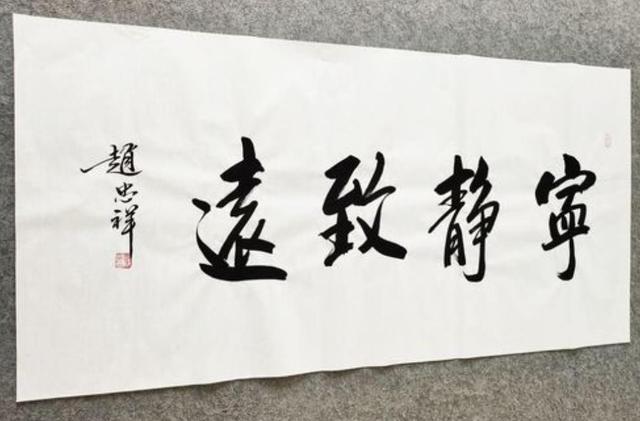 寧靜致遠
趙忠祥